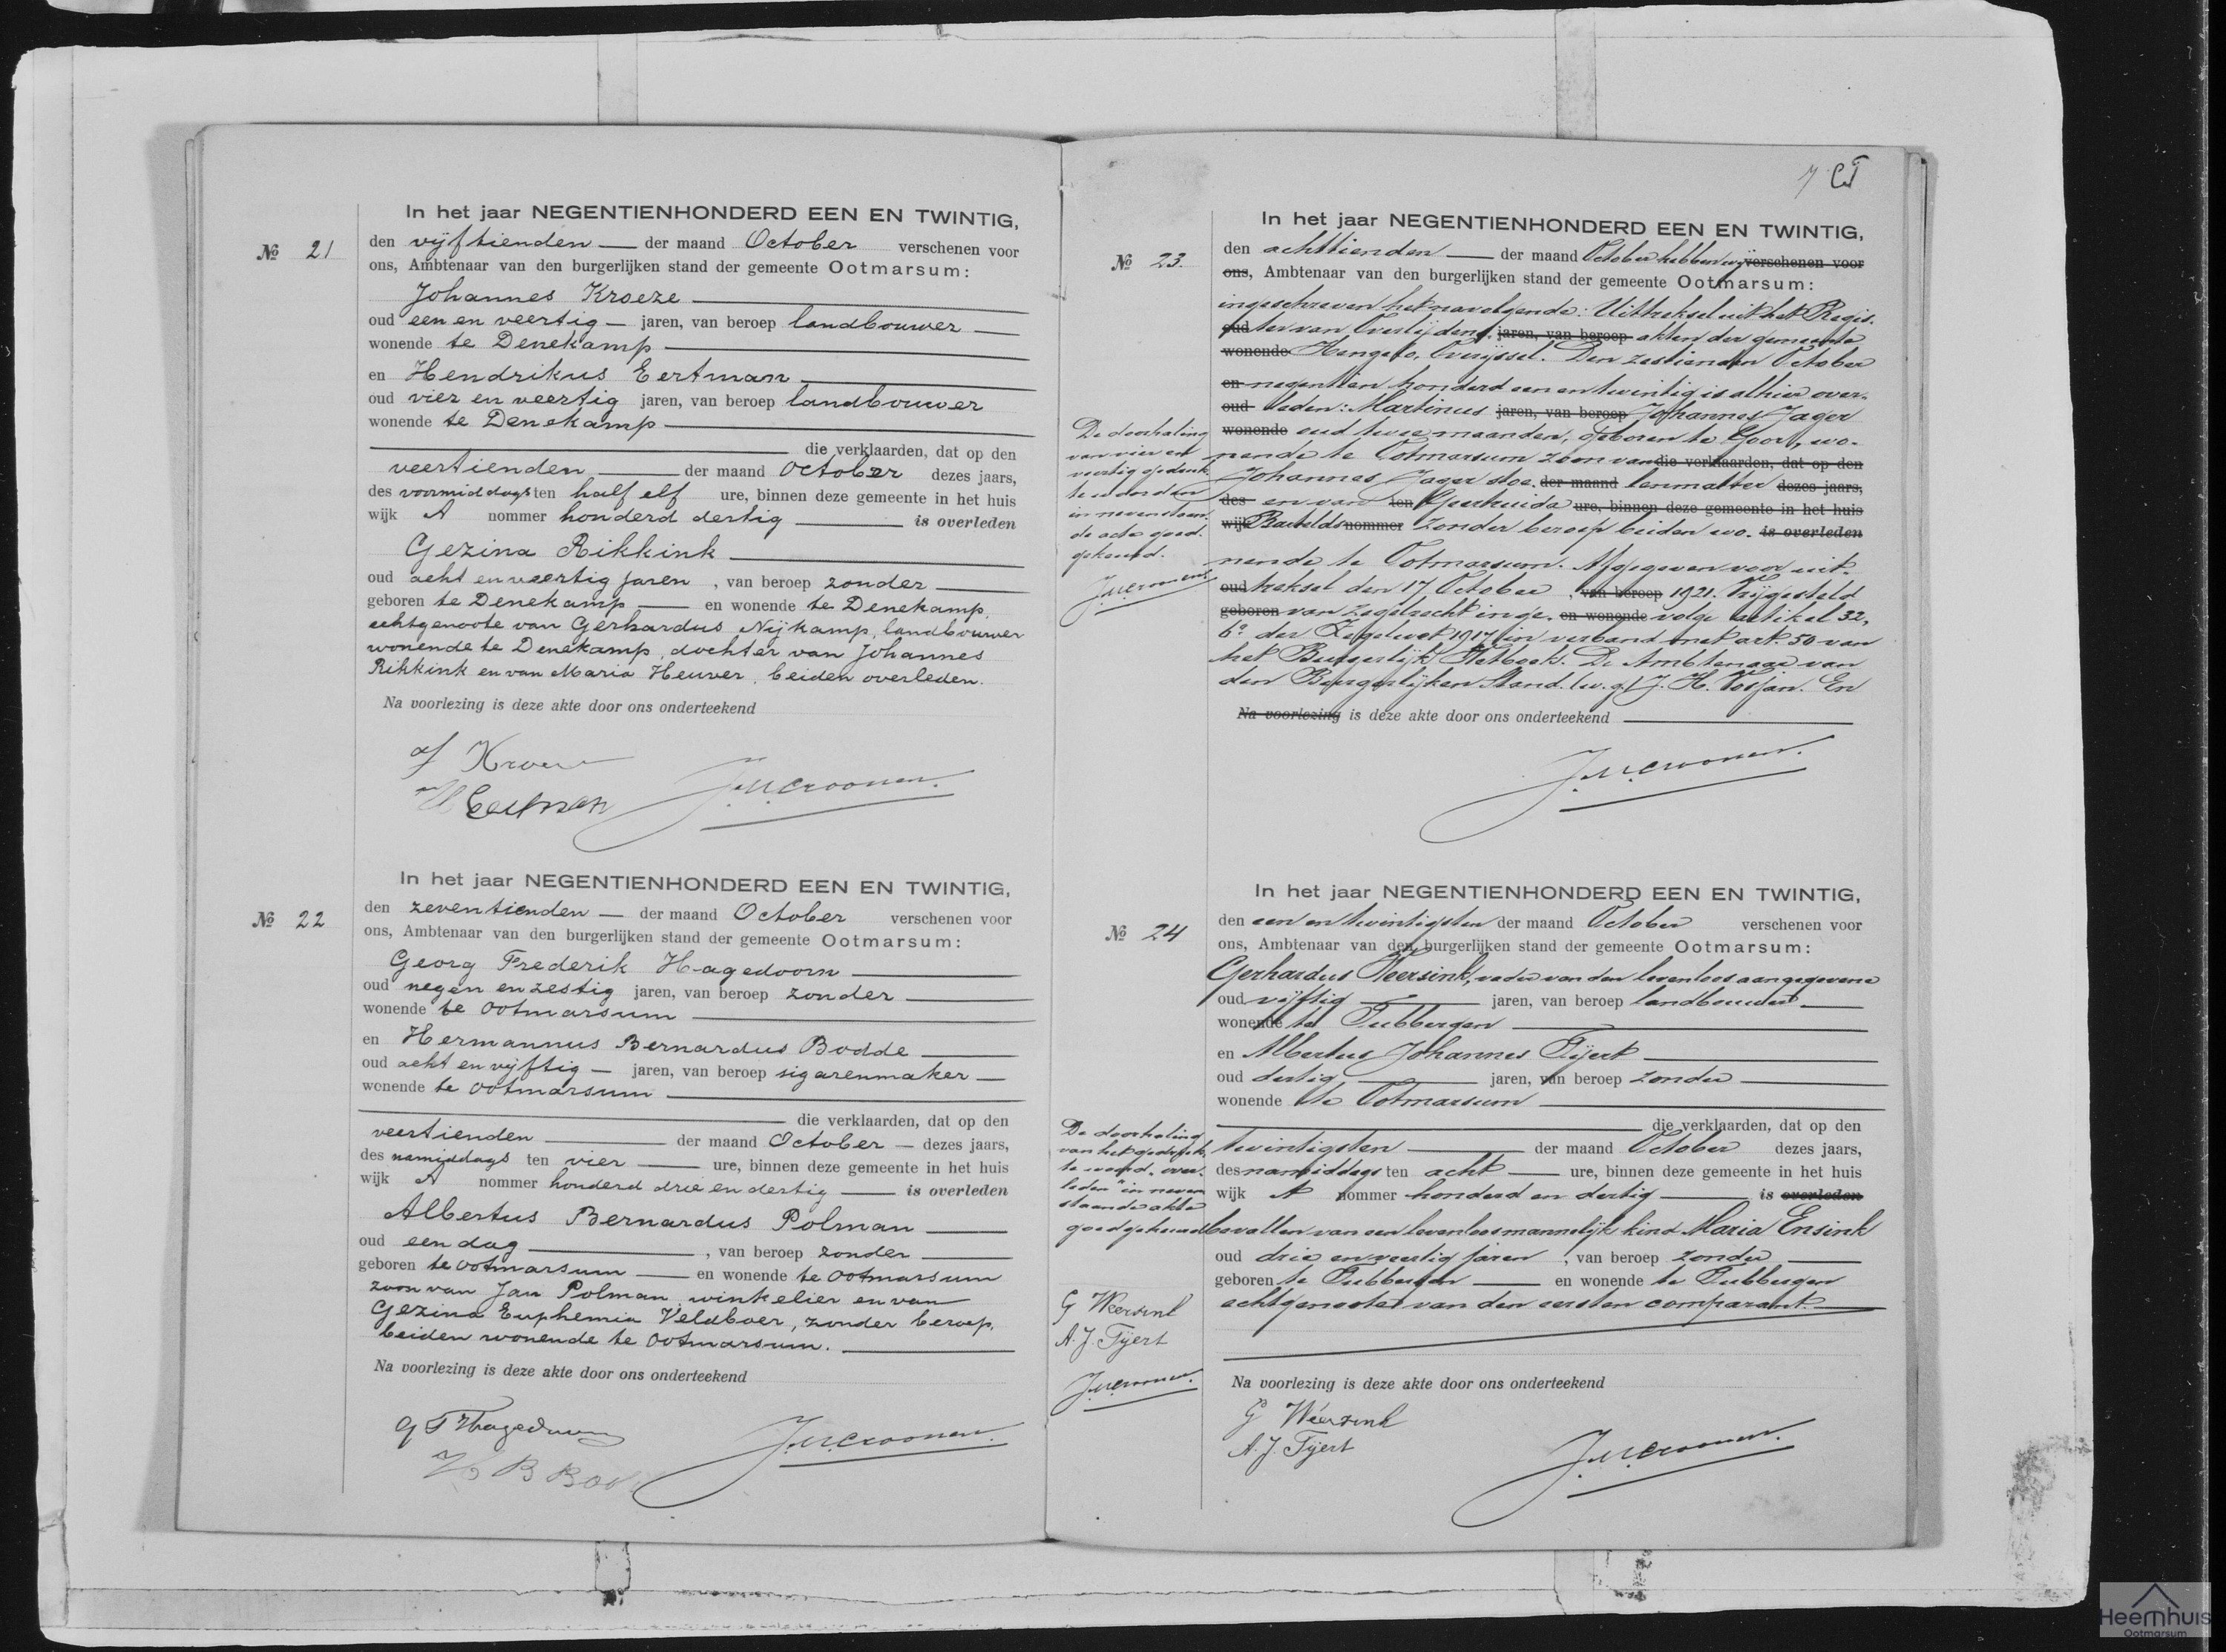 In het jaar NEGENTIENHONDERD EEN EN TWINTIG,
№ 21
den vijftienden — der maand October verschenen voor
ons, Ambtenaar van den burgerlijken stand der gemeente Ootmarsum:
Johannes Kroeze
oud een en veertig — jaren, van beroep landbouwer
wonende te Denekamp
en Hendrikus Eertman
oud vier en veertig jaren, van beroep landbouwer
wonende te Denekamp
die verklaarden, dat op den
veertienden der maand October dezes jaars,
des voormiddags ten half elf ure, binnen deze gemeente in het huis
wijk A nommer honderd dertig is overleden
Gezina Rikkink
oud acht en veertig jaren, van beroep zonder
geboren te Denekamp en wonende te Denekamp,
echtgenoote van Gerhardus Nijkamp, landbouwer
wonende te Denekamp, dochter van Johannes
Rikkink en van Maria Heuver, beiden overleden.
Na voorlezing is deze akte door ons onderteekend
J Kroeze
H Eertman
J.M.Croonen.
In het jaar NEGENTIENHONDERD EEN EN TWINTIG,
№ 22
den zeventienden — der maand October verschenen voor
ons, Ambtenaar van den burgerlijken stand der gemeente Ootmarsum:
Georg Frederik Hagedoorn
oud negen en zestig jaren, van beroep zonder
wonende te Ootmarsum
en Hermannus Bernardus Bodde
oud acht en vijftig — jaren, van beroep sigarenmaker
wonende te Ootmarsum
die verklaarden, dat op den
veertienden der maand October — dezes jaars,
des namiddags ten vier ure, binnen deze gemeente in het huis
wijk A nommer honderd drie en dertig is overleden
Albertus Bernardus Polman
oud een dag, van beroep zonder
geboren te Ootmarsum en wonende te Ootmarsum
zoon van Jan Polman, winkelier en van
Gezina Euphemia Veldboer, zonder beroep,
beiden wonende te Ootmarsum.
Na voorlezing is deze akte door ons onderteekend
G F Hagedoorn
H B Bodde
J.M.Croonen.
7
In het jaar NEGENTIENHONDERD EEN EN TWINTIG,
№ 23.
den achttienden der maand October hebben wij verschenen voor
ons, Ambtenaar van den burgerlijken stand der gemeente Ootmarsum:
ingeschreven het navolgende: Uittreksel uit het Regis-
oud ter van Overlijden jaren, van beroep akten der gemeente
wonende Hengelo, Overijssel. Den zestienden October
en negentien honderd een en twintig is alhier over-
oud leden: Martinus jaren, van beroep Johannes Jager
wonende oud twee maanden, geboren te Goor, wo-
nende te Ootmarsum zoon van die verklaarden, dat op den
Johannes Jager der maand dezes jaars,
des en van ten Geertruida ure, binnen deze gemeente in het huis
wijk Bartelds nommer zonder beroep beiden wo- is overleden
nende te Ootmarsum. Afgegeven voor uit-
oud treksel den 17 October, van beroep 1921. Vrijgesteld
geboren van zegelrecht inge- en wonende volge artikel 32,
6° der Zegelwet 1917 in verband met art. 50 van
het Burgerlijk Wetboek. De Ambtenaar van
den Burgerlijken Stand. (w.g.) J. H. Vosjan. En
Na voorlezing is deze akte door ons onderteekend
J.M.Croonen.
De doorhaling
van vier en
veertig gedrukte
woorden
in nevenstaan-
de acte goed-
gekeurd.
J.M.Croonen
In het jaar NEGENTIENHONDERD EEN EN TWINTIG,
№ 24
den een en twintigsten der maand October verschenen voor
ons, Ambtenaar van den burgerlijken stand der gemeente Ootmarsum:
Gerhardus Weersink, vader van den levenloos aangegevene
oud vijftig jaren, van beroep landbouwer
wonende te Tubbergen
en Albertus Johannes Tijert
oud dertig jaren, van beroep zonder
wonende te Ootmarsum
die verklaarden, dat op den
twintigsten der maand October dezes jaars,
des namiddags ten acht ure, binnen deze gemeente in het huis
wijk A nommer honderd en dertig is overleden
bevallen van een levenloos mannelijk kind Maria Ensink
oud drie en veertig jaren, van beroep zonder
geboren te Tubbergen en wonende te Tubbergen
echtgenoote van den eersten comparant.
Na voorlezing is deze akte door ons onderteekend
G Weersink
A. J. Tijert
J.M.Croonen.
De doorhaling
van het gedruk-
te woord "over-
leden" in neven
staande akte
goedgekeurd
G Weersink
A. J. Tijert
J.M.Croonen.
Heemhuis
Ootmarsum